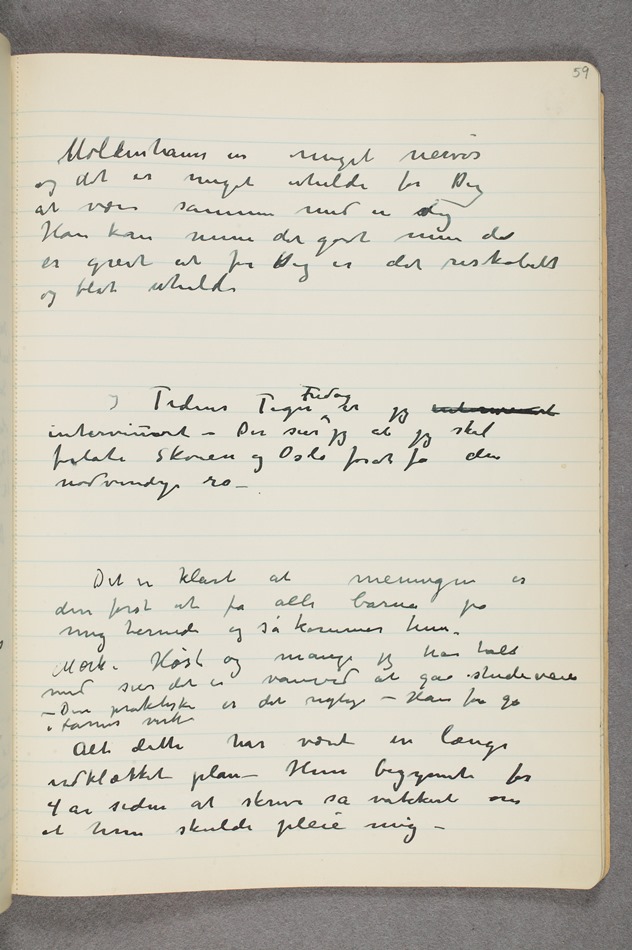 59
Moldenhauer er meget nervøs
og det er meget uheldi for Dig
at være sammen med en slig
Han kan mene det godt men det
er greit at for Dig er det reskabelt
og blot uheldi
I Tidens Tegn Fredag er jeg
interviuvet – Der sier jeg at jeg skal
forlate Skøien og Oslo for at få den
nødvendige ro –
Det er klart at meningen er
den først at få alle barna på
mig hernede og så kommer hun.
Mørk. Høst og mange jeg har talt
med sier det er vanvid at gaa studieveien
– Den praktiske er det rigtige – Han får gå
i Farens virke
Alt dette har været en længe
udklækket plan – Hun begynte for
4 år siden at skrive så vakkert om
at hun skulde pleie mig –